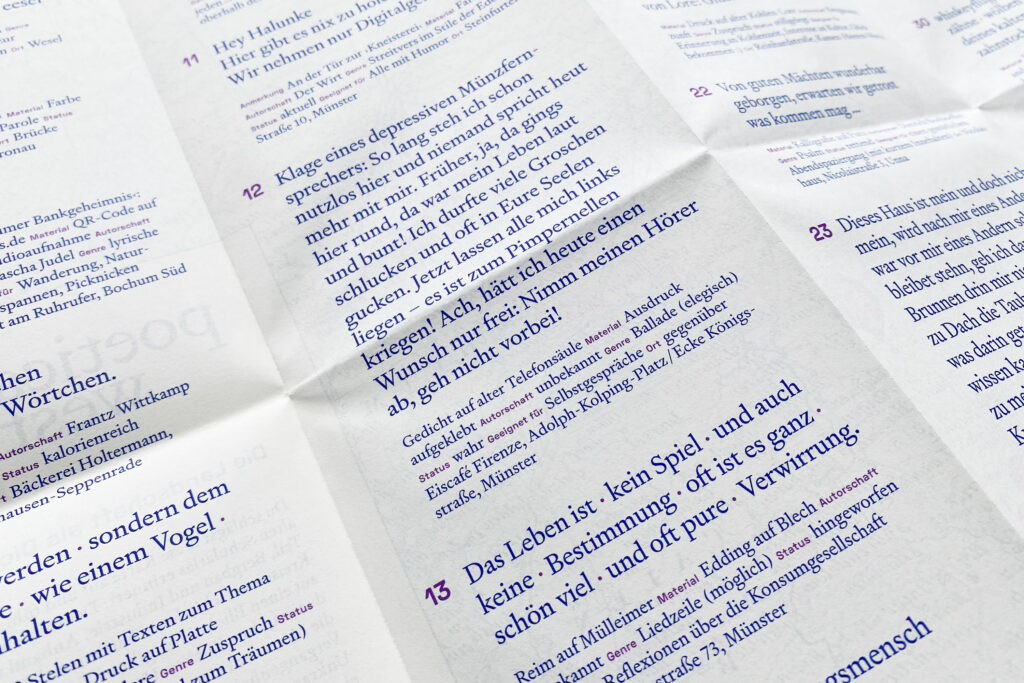 Wesel
Material Farbe
Parole Status
Ort Brücke
ronau
umer Bankgeheimnis‹:
s.de Material QR-Code auf
dioaufnahme Autorschaft
ascha Judel Genre lyrische
für Wanderung, Natur-
spannen, Picknicken
t am Ruhrufer, Bochum Süd
chen
Wörtchen.
Autorschaft Frantz Wittkamp
Status kalorienreich
Bäckerei Holtermann,
hausen-Seppenrade
werden · sondern dem
e · wie einem Vogel ·
nhalten.
Stelen mit Texten zum Thema
Druck auf Platte
Genre Zuspruch Status
zum Träumen)
11 Hey Halunke
Hier gibt es nix zu
Wir nehmen nur
Anmerkung An der Tür zur ›Kneisterei‹ Material
Autorschaft Der Wirt Genre Streitvers im Stile der
Status aktuell Geeignet für Alle mit Humor Ort Steinfurter
Straße 10, Münster
12 Klage eines depressiven Münzfern-
sprechers: So lang steh ich schon
nutzlos hier und niemand spricht heut
mehr mit mir. Früher, ja, da gings
hier rund, da war mein Leben laut
und bunt! Ich durfte viele Groschen
schlucken und oft in Eure Seelen
gucken. Jetzt lassen alle mich links
liegen – es ist zum Pimpernellen
kriegen! Ach, hätt ich heute einen
Wunsch nur frei: Nimm meinen Hörer
ab, geh nicht vorbei!
Gedicht auf alter Telefonsäule Material Ausdruck
aufgeklebt Autorschaft unbekannt Genre Ballade (elegisch)
Status wahr Geeignet für Selbstgespräche Ort gegenüber
Eiscafé Firenze, Adolph-Kolping-Platz/Ecke Königs-
straße, Münster
13 Das Leben ist · kein Spiel · und auch
keine · Bestimmung · oft ist es ganz ·
schön viel · und oft pure · Verwirrung.
Reim auf Mülleimer Material Edding auf Blech Autorschaft
bekannt Genre Liedzeile (möglich) Status hingeworfen
Reflexionen über die Konsumgesellschaft
straße 73, Münster
gsmensch
22 Von guten Mächten wunderbar
geborgen, erwarten wir getrost
was kommen mag ...
haus, Nicolaistraße 1, Unna
23 Dieses Haus ist mein und doch nich
mein, wird nach mir eines Ande
war vor mir eines Andern s
bleibet stehn, geh ich da
Brunnen drin mir ni
zu Dach die Tau
was darin ge
wissen ka
zu me
K
30